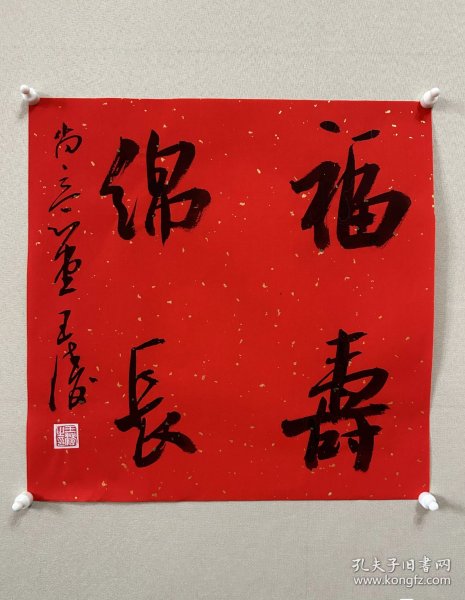 福壽
綿長
尚意堂 王
孔夫子旧书网
www.kongfz.com